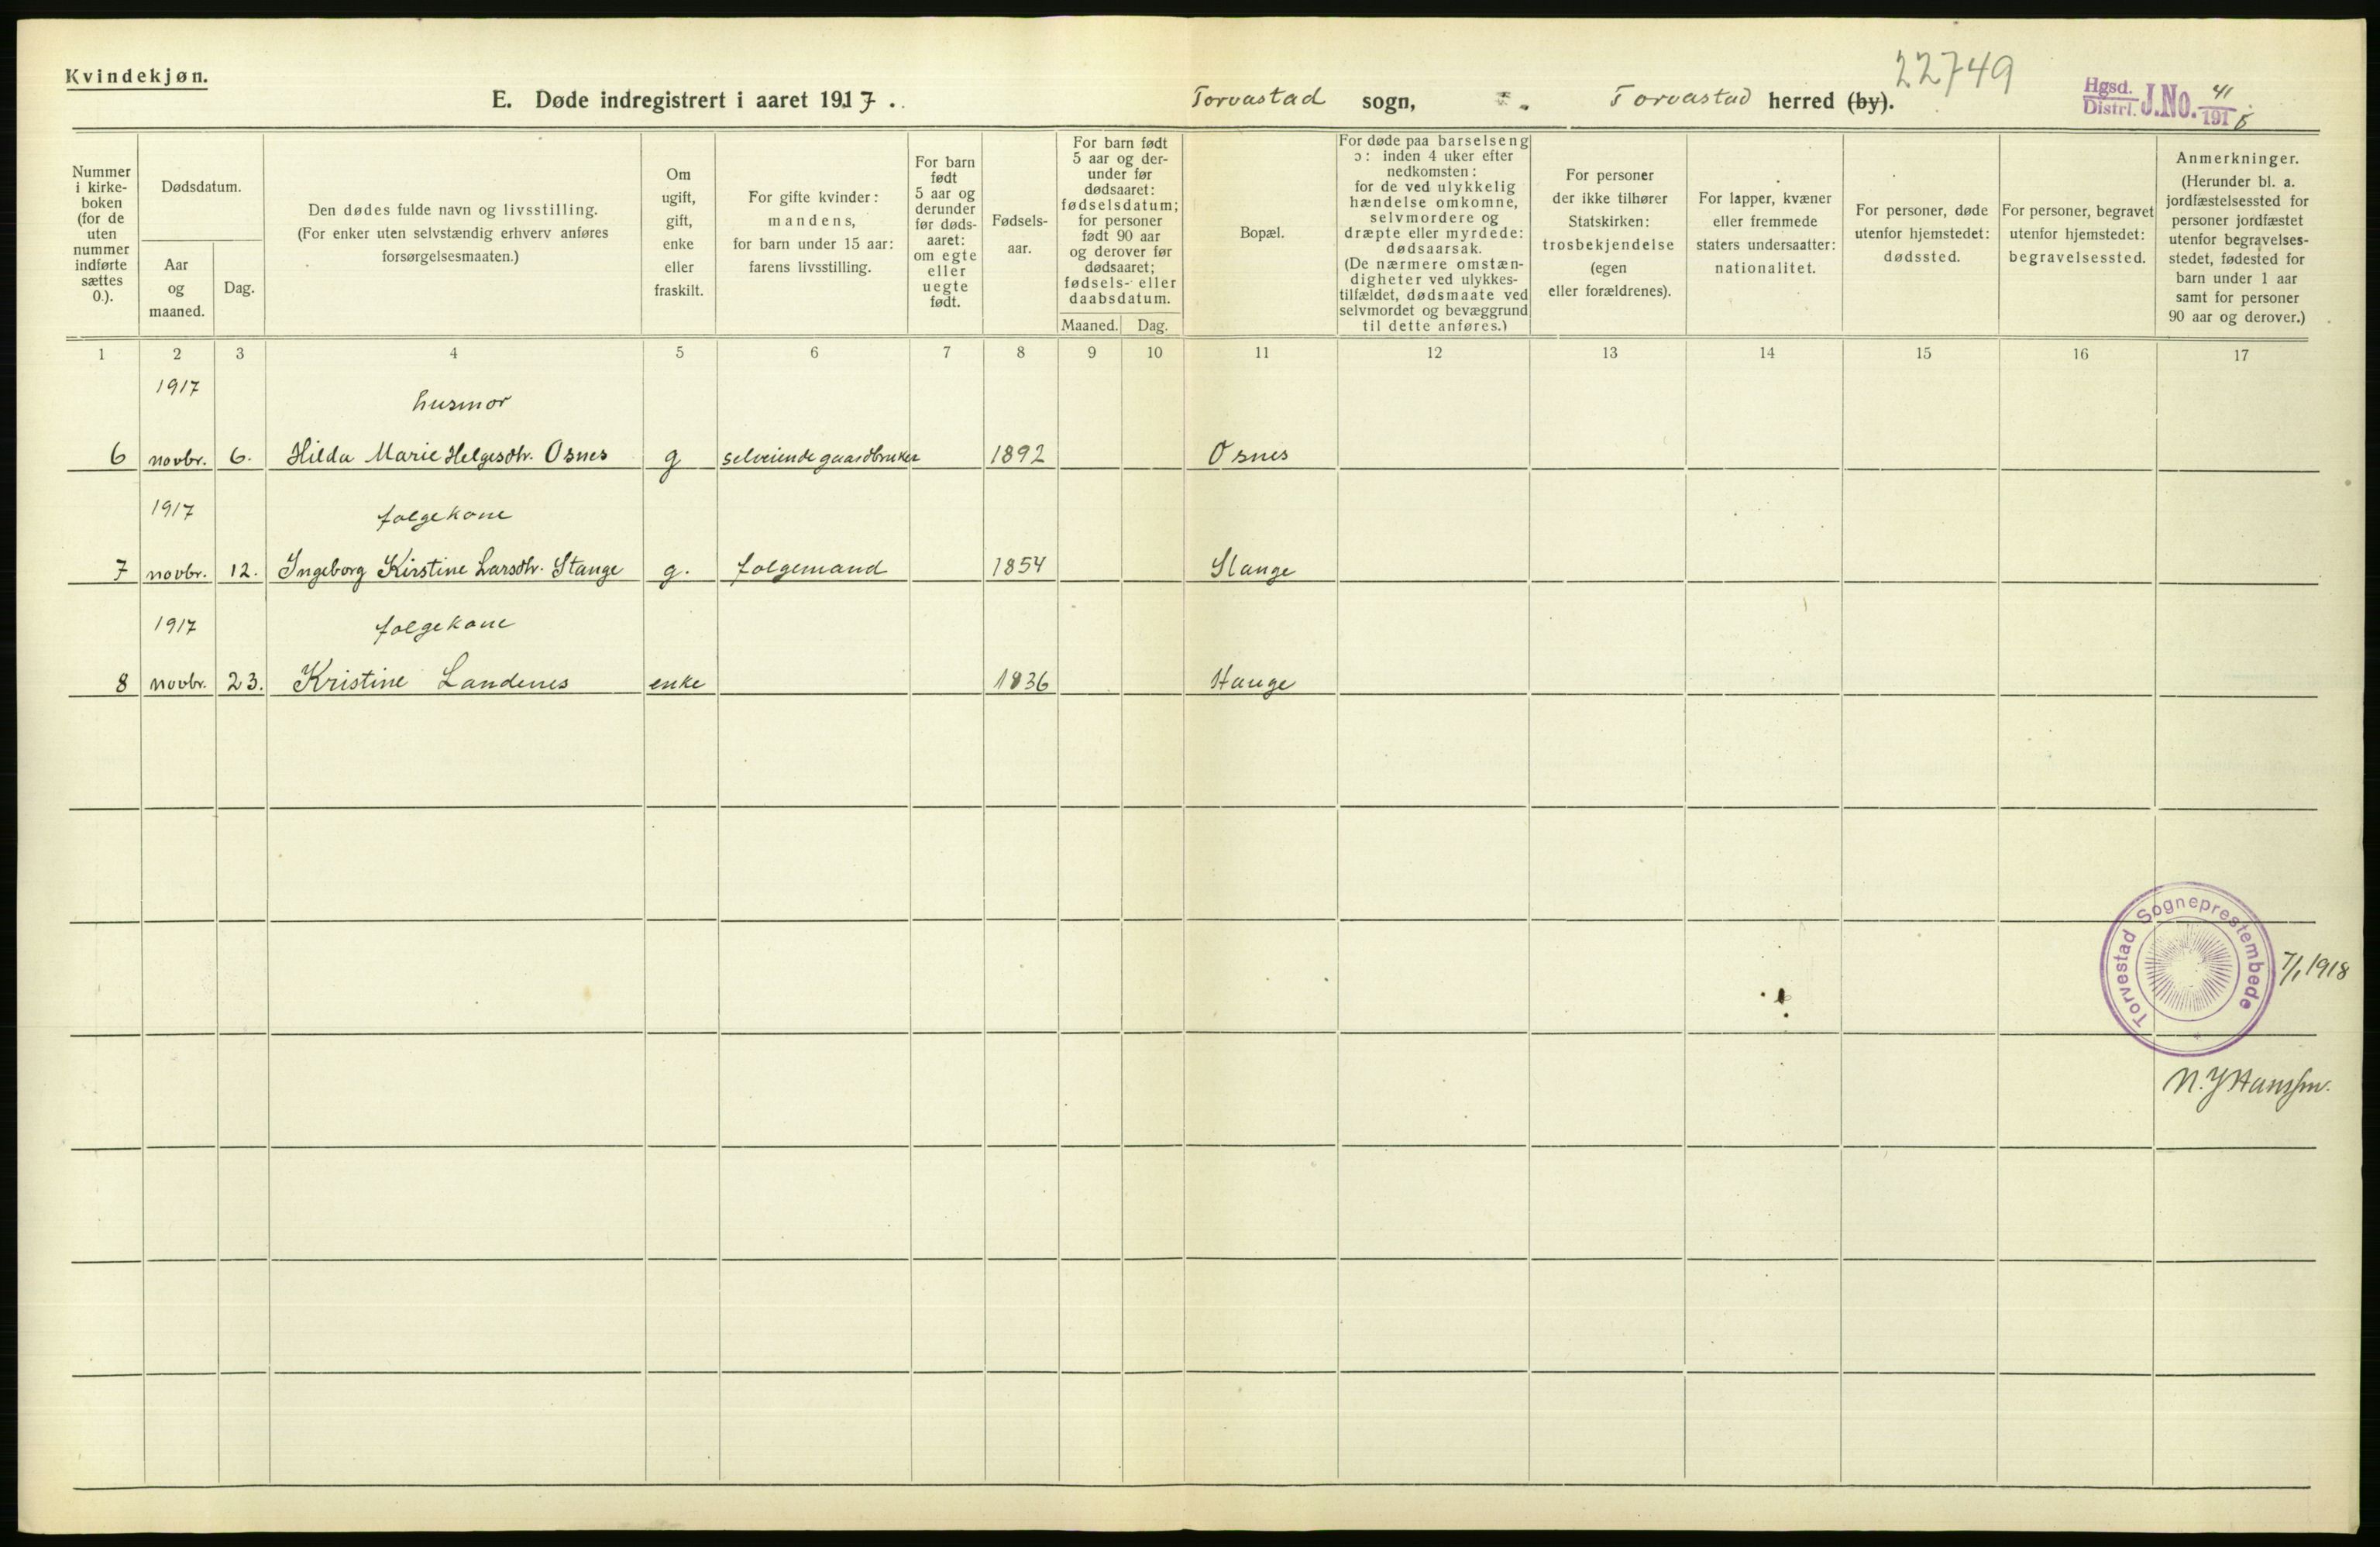 Kvindekjøn.
E. Døde indregistrert i aaret 1917.
Torvastad sogn, Torvastad herred (by).
22749
Hgsd. Distri. J.No. 41/1918
Nummer
i kirke-
boken
(for de
uten
nummer
indførte
sættes
0.).
Dødsdatum.
Aar
og
maaned.
Dag.
Den dødes fulde navn og livsstilling.
(For enker uten selvstændig erhverv anføres
forsørgelsesmaaten.)
Om
ugift,
gift,
enke
eller
fraskilt.
For gifte kvinder:
mandens,
for barn under 15 aar:
farens livsstilling.
For barn
født
5 aar og
derunder
før døds-
aaret:
om egte
eller
uegte
født.
Fødsels-
aar.
For barn født
5 aar og der-
under før
dødsaaret:
fødselsdatum;
for personer
født 90 aar
og derover før
dødsaaret;
fødsels- eller
daabsdatum.
Maaned. Dag.
Bopæl.
For døde paa barselseng
ɔ: inden 4 uker efter
nedkomsten:
for de ved ulykkelig
hændelse omkomne,
selvmordere og
dræpte eller myrdede:
dødsaarsak.
(De nærmere omstæn-
digheter ved ulykkes-
tilfældet, dødsmaate ved
selvmordet og bevæggrund
til dette anføres.)
For personer
der ikke tilhører
Statskirken:
trosbekjendelse
(egen
eller forældrenes).
For lapper, kvæner
eller fremmede
staters undersaatter:
nationalitet.
For personer, døde
utenfor hjemstedet:
dødssted.
For personer, begravet
utenfor hjemstedet:
begravelsessted.
Anmerkninger.
(Herunder bl. a.
jordfæstelsessted for
personer jordfæstet
utenfor begravelses-
stedet, fødested for
barn under 1 aar
samt for personer
90 aar og derover.)
1 2 3 4 5 6 7 8 9 10 11 12 13 14 15 16 17
1917 husmor
6 novbr. 6. Hilda Marie Helgesdtr. Osnes g selveiende gaardbruker 1892 Osnes
1917 folgekone
7 novbr. 12. Ingeborg Kirstine Larsdtr. Stange g. folgemand 1854 Stange
1917 folgekone
8 novbr. 23. Kristine Landenes enke 1836 Hauge
Torvestad Sogneprestembede
7/1 1918
N. J Hansen.